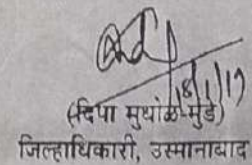 18/1/19
(दिपा मुधोळ-मुंडे)
जिल्हाधिकारी, उस्मानाबाद